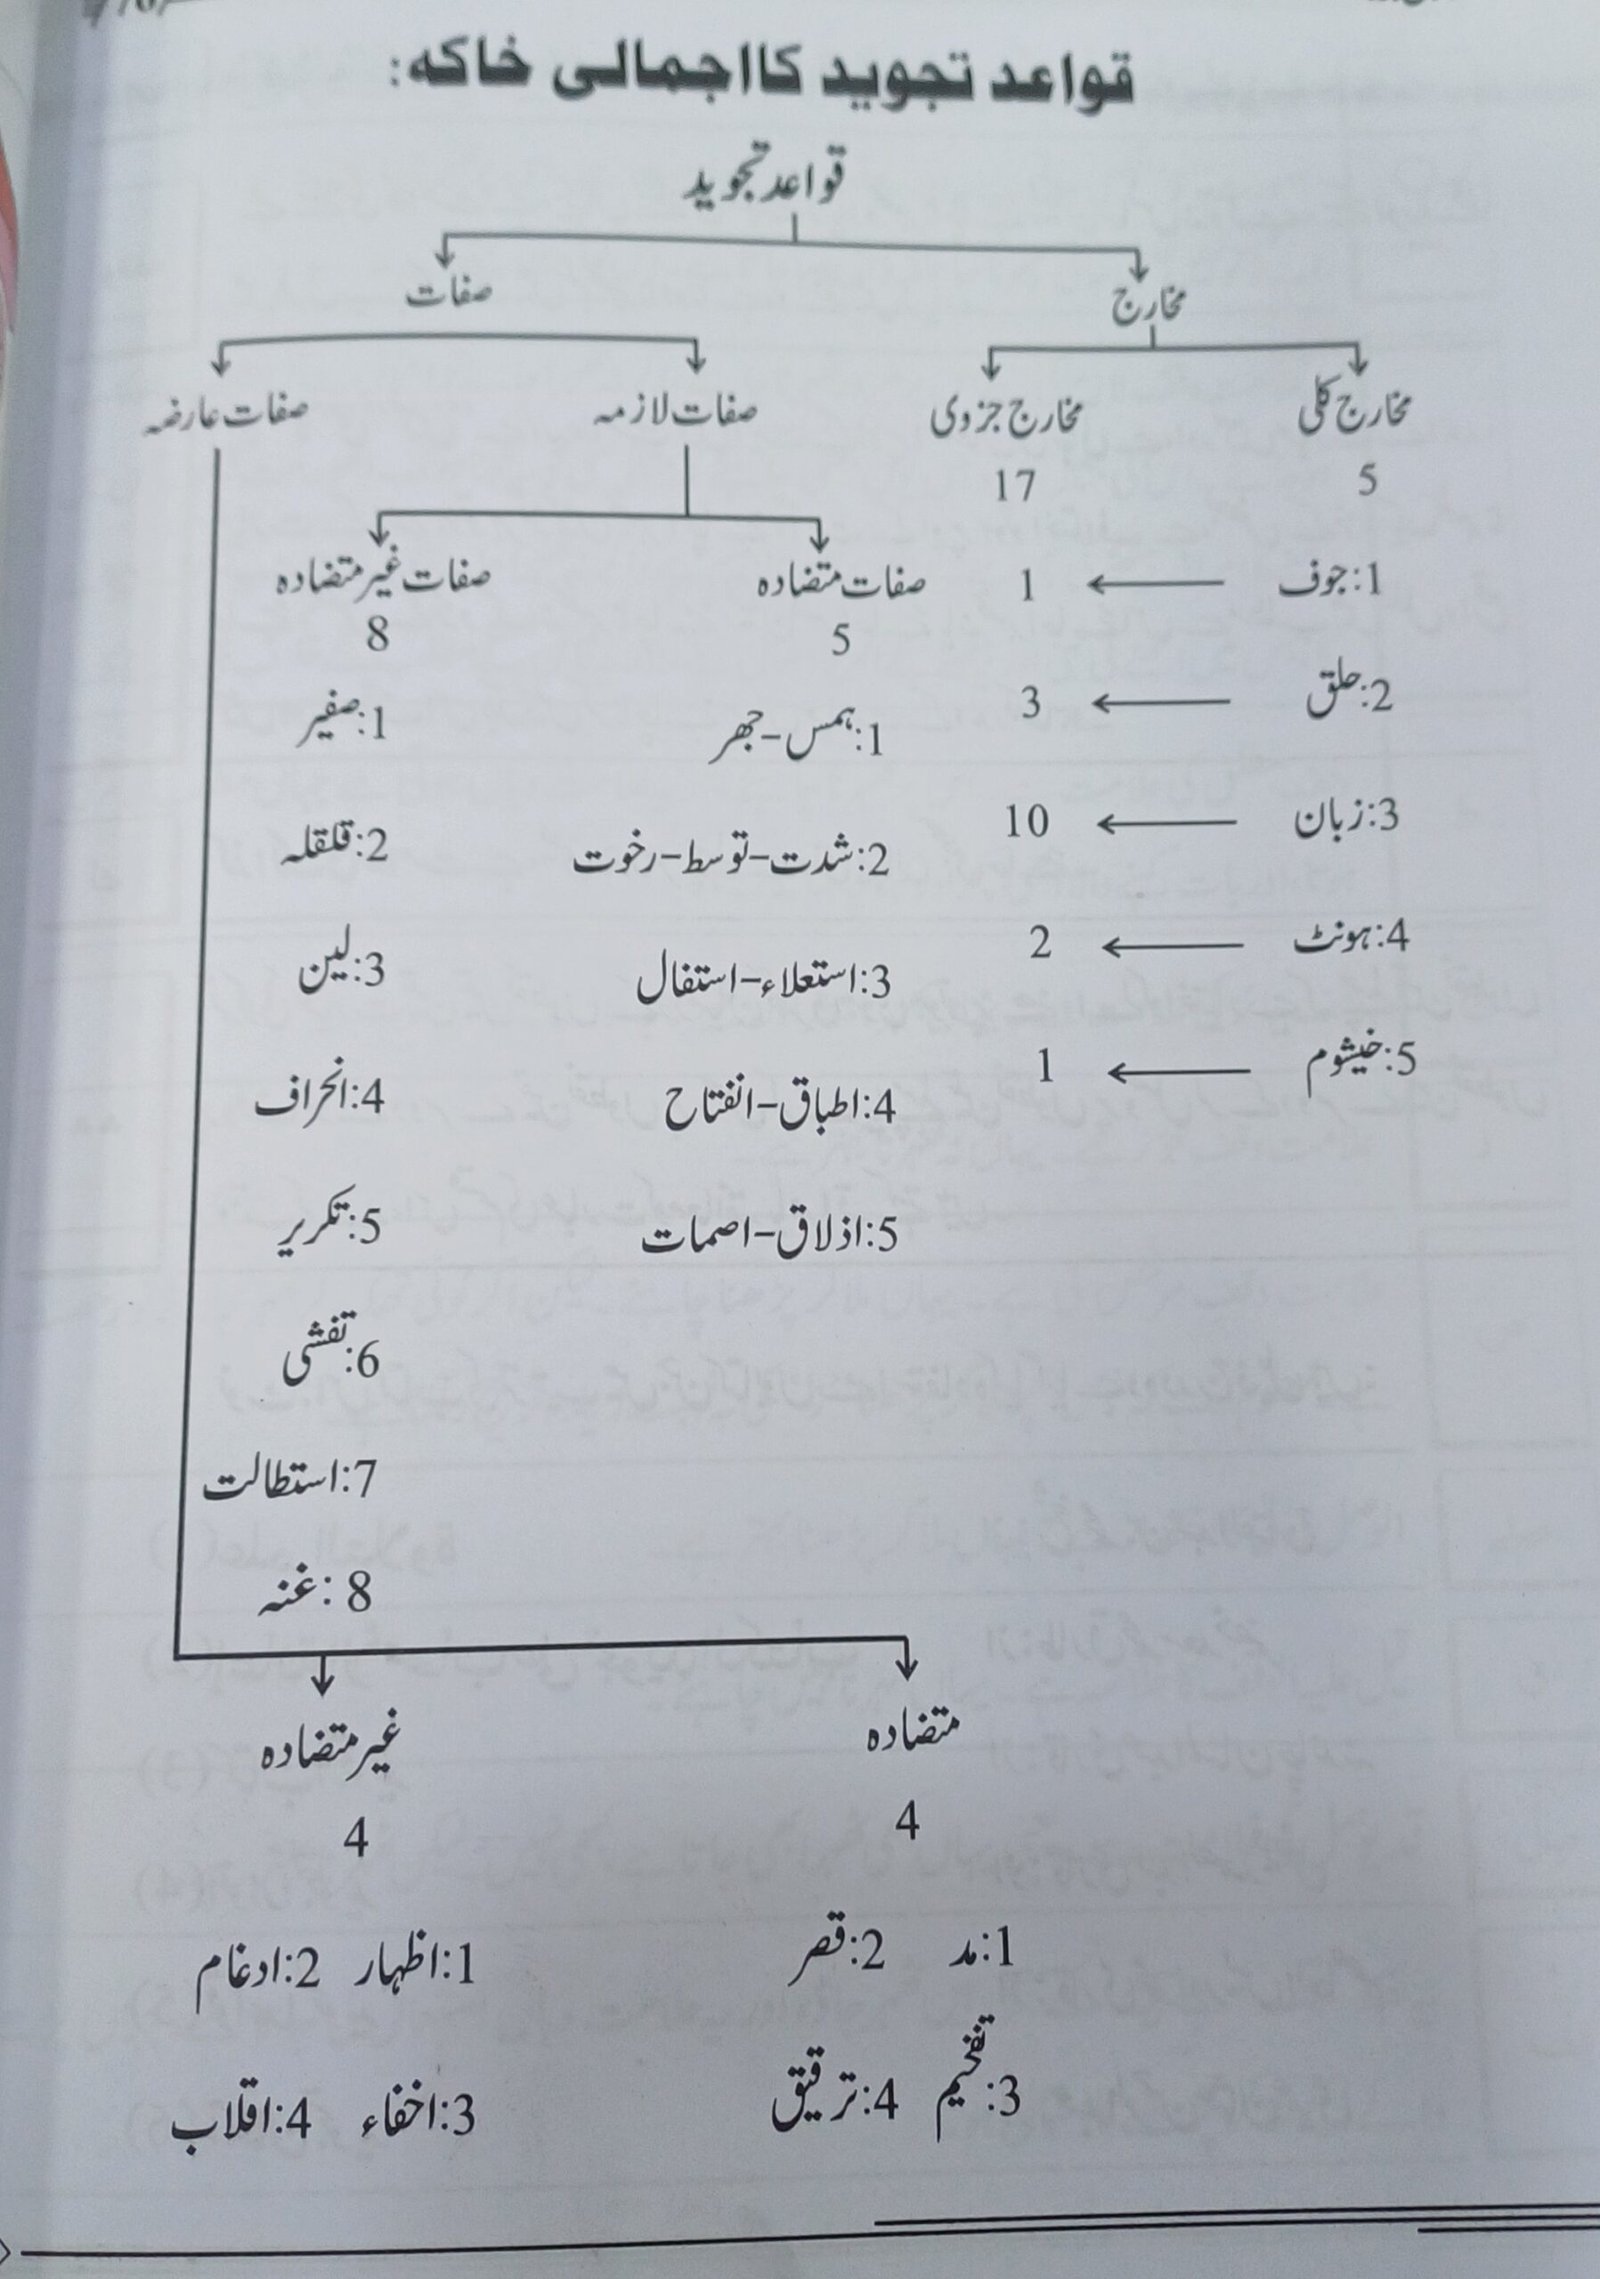 قواعد تجوید کا اجمالی خاکہ:
قواعد تجوید
مخارج صفات
مخارج کلی مخارج جزوی صفات لازمہ صفات عارضہ
5 17
صفات متضادہ صفات غیر متضادہ
5 8
1:جوف 1
2:حلق 3
3:زبان 10
4:ہونٹ 2
5:خیشوم 1
1:ہمس-جھر
2:شدت-توسط-رخوت
3:استعلاء-استفال
4:اطباق-انفتاح
5:اذلاق-اصمات
1:صفیر
2:قلقلہ
3:لین
4:انحراف
5:تکریر
6:تفشی
7:استطالت
8:غنہ
متضادہ غیر متضادہ
4 4
1:مد 2:قصر 1:اظہار 2:ادغام
3:تفخیم 4:ترقیق 3:اخفاء 4:اقلاب